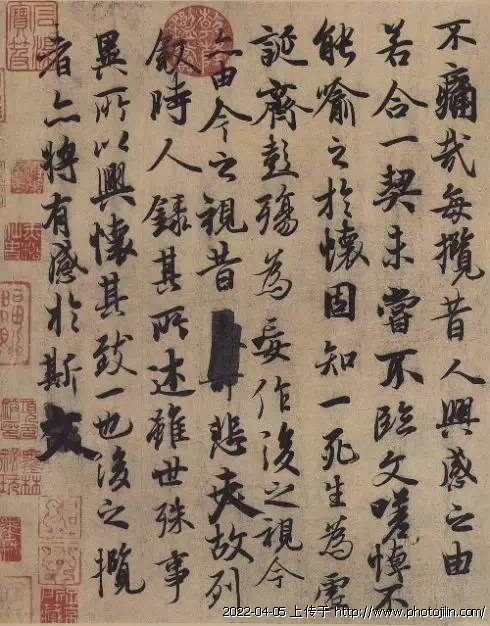 不痛哉每攬昔人興感之由
若合一契未嘗不臨文嗟悼不
能喻之於懷固知一死生為虛
誕齊彭殤為妄作後之視今
亦由今之視昔悲夫故列
敘時人錄其所述雖世殊事
異所以興懷其致一也後之攬
者亦將有感於斯文
2022-04-05 上传于 http://www.photojilin.com/